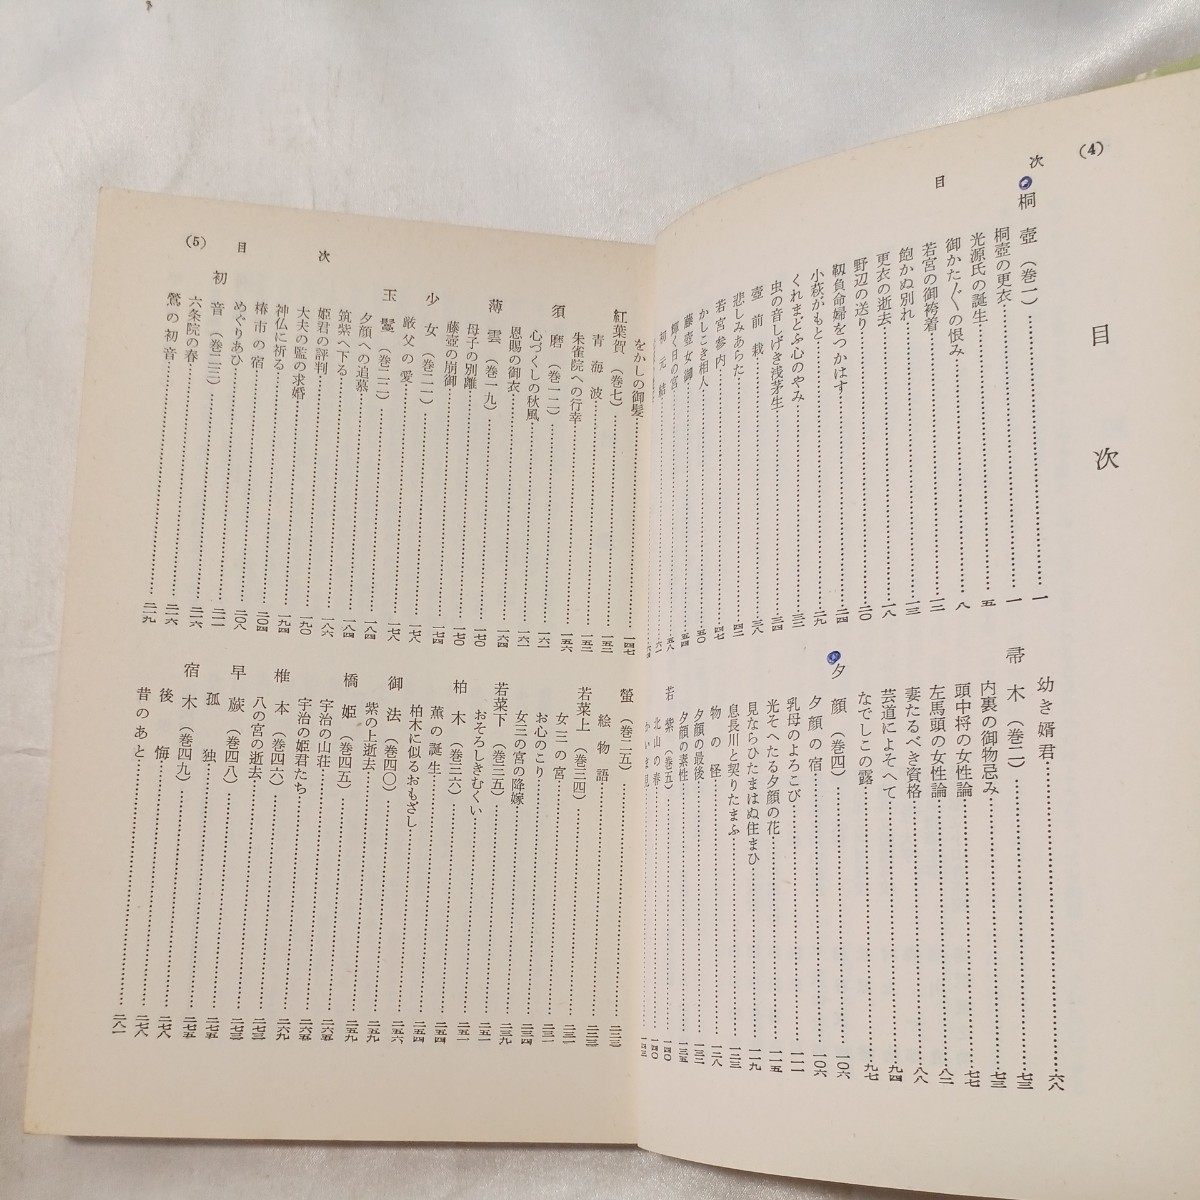 (4)
目次
目次
桐壺（巻一）……一
桐壺の更衣……一
光源氏の誕生……五
御かた／″＼の恨み……八
若宮の御袴着……一二
飽かぬ別れ……一三
更衣の逝去……一八
野辺の送り……二〇
靱負命婦をつかはす……二四
小萩がもと……二九
くれまどふ心のやみ……三二
虫の音しげき浅茅生……三三
壺前栽……三八
悲しみあらた……四二
若宮参内……四七
かしこき相人……五〇
藤壺女御……五四
輝く日の宮……五八
初元結……六一
幼き婿君……六八
帚木（巻二）……七三
内裏の御物忌み……七三
頭中将の女性論……七七
左馬頭の女性論……八二
妻たるべき資格……八八
芸道によそへて……九四
なでしこの露……九七
夕顔（巻四）……一〇六
夕顔の宿……一〇六
乳母のよろこび……一一一
光そへたる夕顔の花……一一五
見ならひたまはぬ住まひ……一一九
息長川と契りたまふ……一二三
物の怪……一二八
夕顔の最後……一三二
夕顔の素性……一三五
若紫（巻五）……一四〇
北山の春……一四〇
かいま見……一四三
(5)
目次
をかしの御髪……一四七
紅葉賀（巻七）……一五二
青海波……一五二
朱雀院への行幸……一五六
須磨（巻一二）……一六一
心づくしの秋風……一六一
恩賜の御衣……一六四
薄雲（巻一九）……一七〇
母子の別離……一七〇
藤壺の崩御……一七四
少女（巻二一）……一七八
厳父の愛……一七八
玉鬘（巻二二）……一八四
夕顔への追慕……一八四
筑紫へ下る……一八六
姫君の評判……一九〇
大夫の監の求婚……一九四
神仏に祈る……二〇四
椿市の宿……二〇八
めぐりあひ……二一一
初音（巻二三）……二一六
六条院の春……二一六
鶯の初音……二一九
螢（巻二五）……二二三
絵物語……二二三
若菜上（巻三四）……二三一
女三の宮……二三一
お心のこり……二三四
女三の宮の降嫁……二三九
若菜下（巻三五）……二五一
おそろしきむくい……二五一
柏木（巻三六）……二五四
薫の誕生……二五四
柏木に似るおもざし……二五六
御法（巻四〇）……二五九
紫の上逝去……二五九
橋姫（巻四五）……二六五
宇治の山荘……二六五
宇治の姫君たち……二六九
椎本（巻四六）……二七三
八の宮の逝去……二七三
早蕨（巻四八）……二七五
孤独……二七五
宿木（巻四九）……二七八
後悔……二七八
昔のあと……二八一